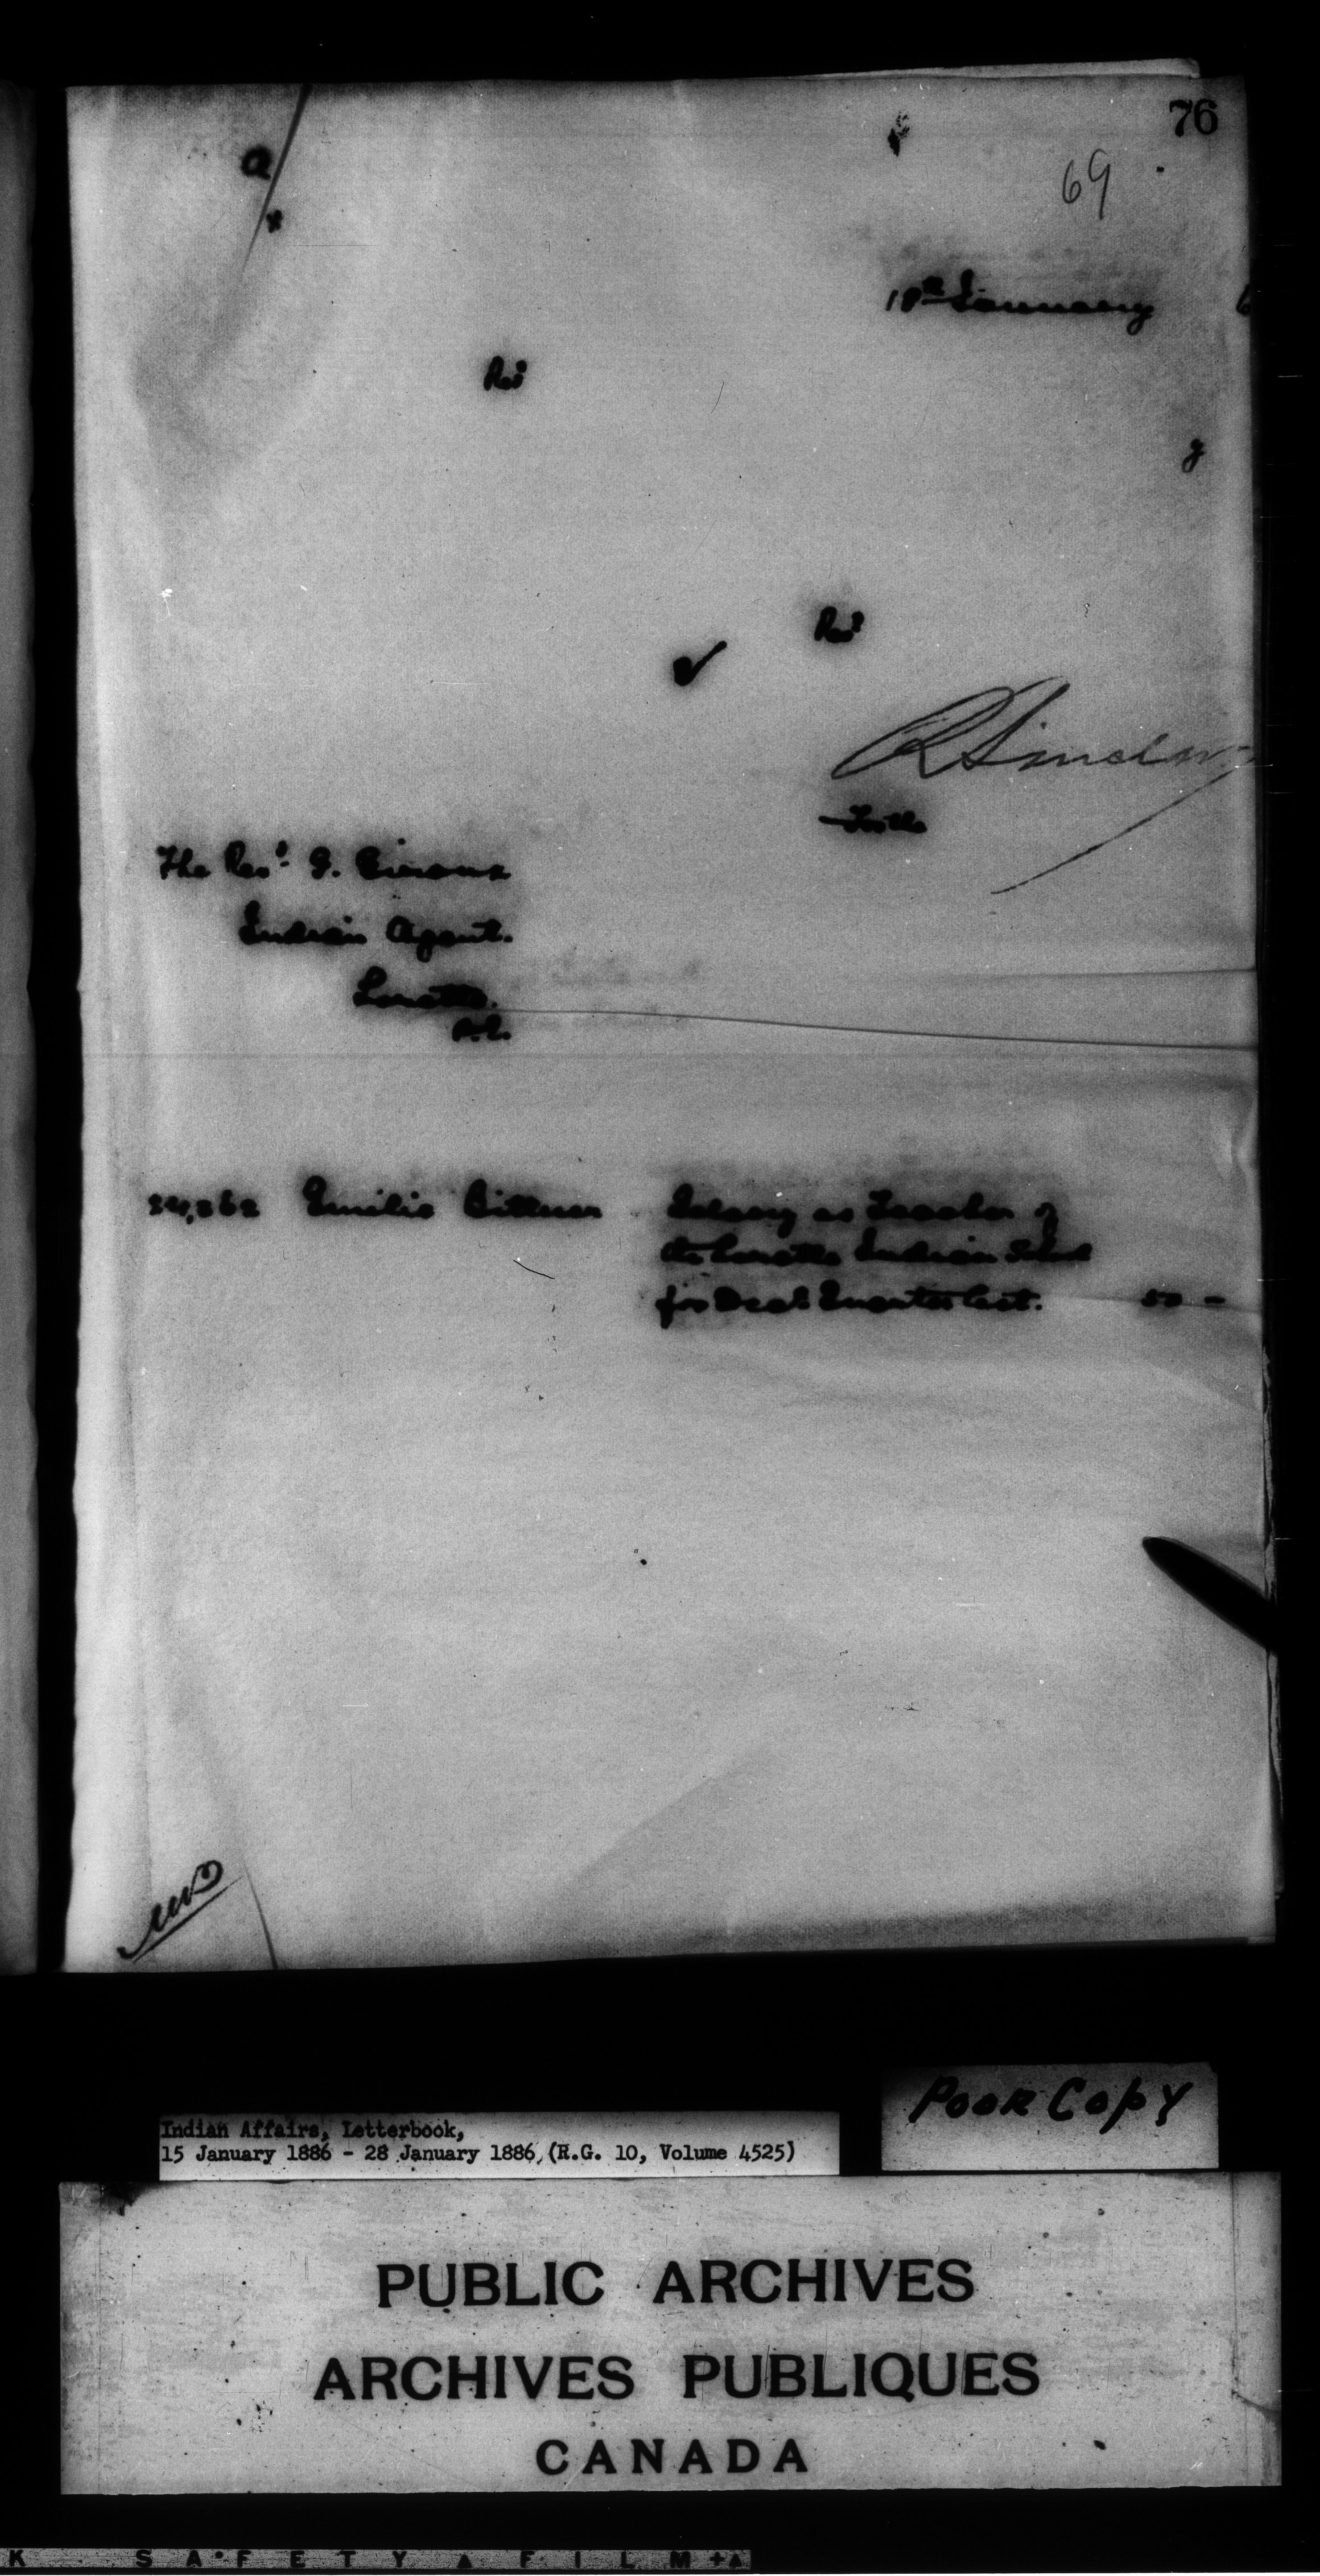 76
69
a
x
18th January 6
Revd
y
Revd
✓
R Sinclair
The Revd. G. Giroux
Indian Agent.
Lorette.
P.Q.
Emilie Salary as Teacher of
the Lorette Indian School
for Decr Quarter last. 50 -
Poor Copy
Indian Affairs, Letterbook,
15 January 1886 - 28 January 1886, (R.G. 10, Volume 4525)
PUBLIC ARCHIVES
ARCHIVES PUBLIQUES
CANADA
K SAFETY ▲ FILM +▲